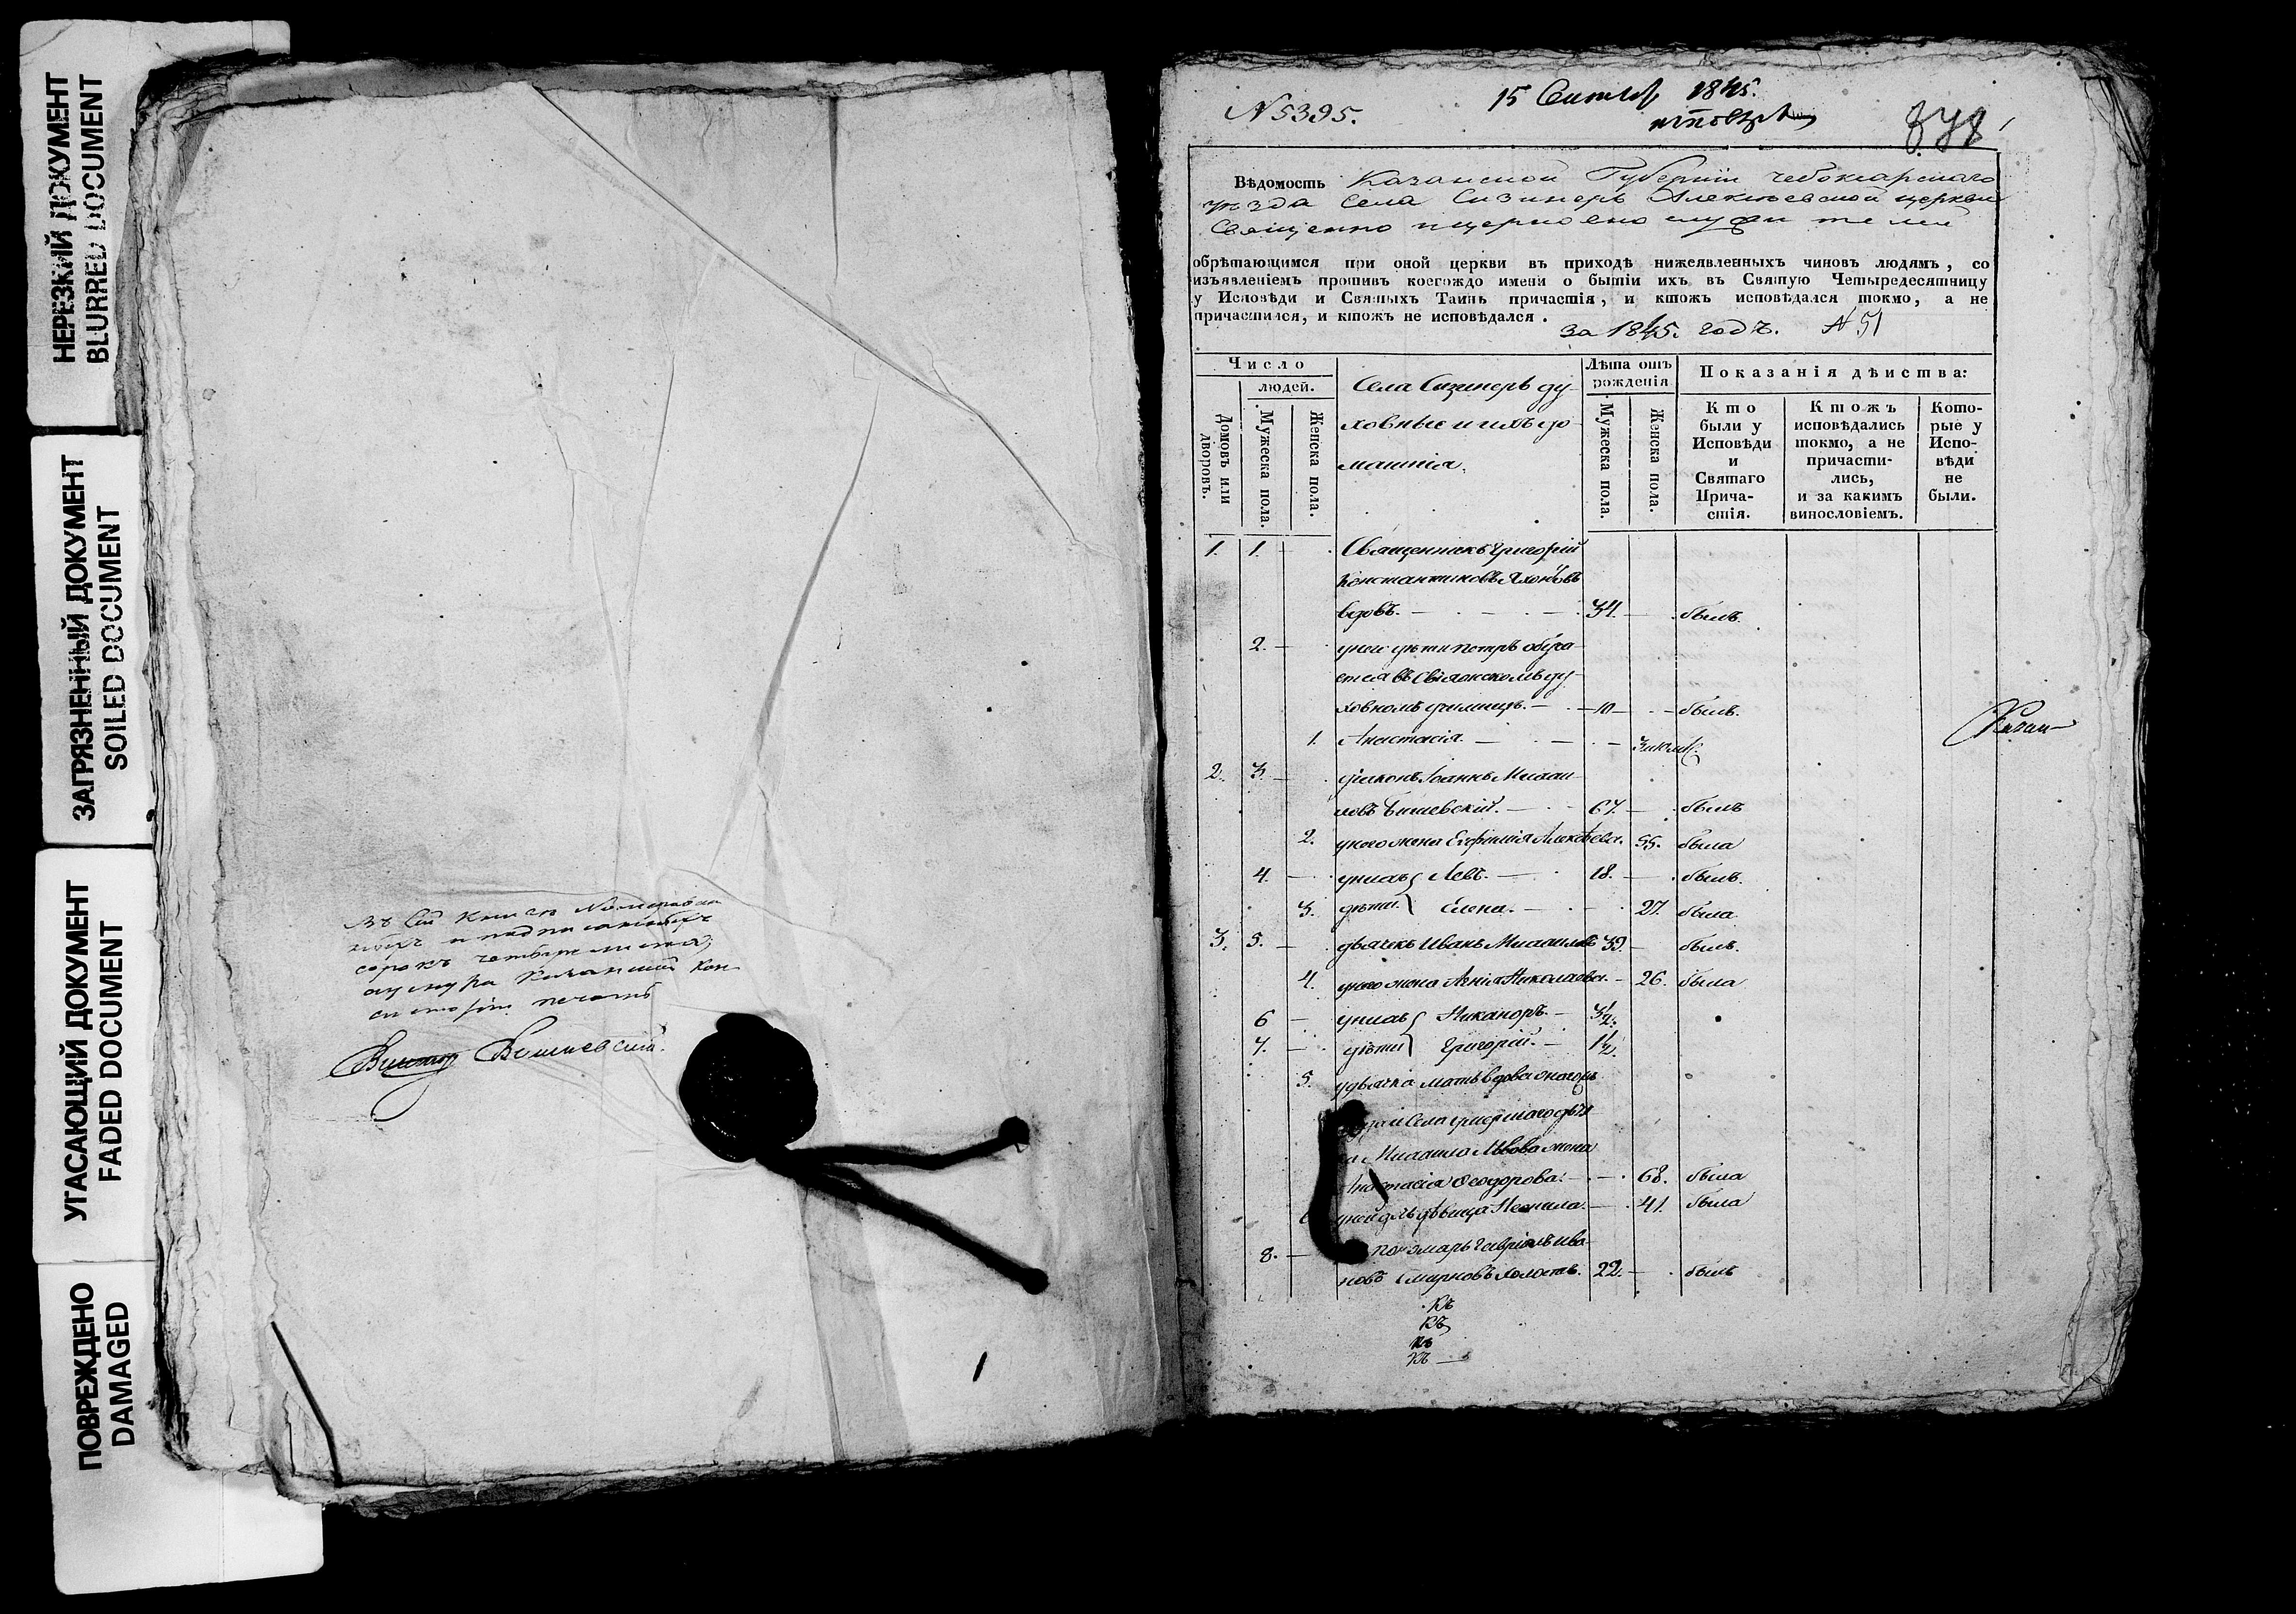 НЕРЕЗКИЙ ДОКУМЕНТ
BLURRED DOCUMENT
ЗАГРЯЗНЕННЫЙ ДОКУМЕНТ
SOILED DOCUMENT
УГАСАЮЩИЙ ДОКУМЕНТ
FADED DOCUMENT
ПОВРЕЖДЕНО
DAMAGED
Въ сей книгѣ
сорокъ четыре листа
Казанской Кон
систоріи печать
1
N 5395.
15 1845.
Вѣдомость Казанской Губерніи Чебоксарскаго
уѣзда Села Сизинеръ Алексѣевской церкви
Священно и церковно служителей
обрѣтающимся при оной церкви въ приходѣ нижеявленныхъ чиновъ людямъ, со
изъявленіемъ противъ коегождо имени о бытіи ихъ въ Святую Четыредесятницу
у Исповѣди и Святыхъ Таинъ причастія, и ктожъ исповѣдался токмо, а не
причастился, и ктожъ не исповѣдался.
за 1845. годъ. N 51
Число
людей.
Домовъ или дворовъ.
Мужеска пола.
Женска пола.
Села Сизинеръ ду
ховные и ихъ до
машнія.
Лѣта отъ рожденія
Мужеска пола.
Женска пола.
Показанія дѣйства:
Кто были у Исповѣди и Святаго Прича-стія.
Ктожъ исповѣдались токмо, а не причасти-лись, и за какимъ винословіемъ.
Кото-рые у Испо-вѣди не были.
1. 1. Священникъ Григорій
Константиновъ
вдовъ. 34. былъ.
2. дѣти Петръ обуча
ется въ Свіяжскомъ ду
ховномъ училищѣ. 10 былъ.
1. Анастасія.
2. 3. діаконъ Іоаннъ Михаи
ловъ 67. былъ
2. у него жена Евфимія Алексѣева. 55. была
4. у нихъ Левъ. 18. былъ.
3. дѣти Елена. 27. была
3. 5. дьячекъ Иванъ Михаиловъ 39. былъ.
4. у него жена Николаева. 26. была
6 у нихъ Никаноръ. 3½.
7. дѣти Григорій. 1½.
5. у дьячка мать вдова
Михаила Львова жена
Анастасія Ѳеодорова. 68. была
у ней дочь дѣвица Неонила. 41. была
8. пономарь Гавріилъ Ива
новъ Смирновъ холостъ. 22. былъ